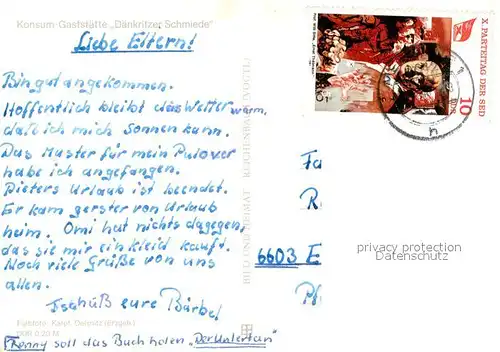 Konsum-Gaststätte „Dänkritzer Schmiede"
Liebe Eltern!
Bin gut angekommen.
Hoffentlich bleibt das Wetter warm,
daß ich mich sonnen kann.
Das Muster für mein Pulover
habe ich angefangen.
Dieters Urlaub ist beendet.
Er kam gerster von Urlaub
heim. Omi hat nichts dagegen,
das sie mir ein kleid kauft.
Noch viele Grüße von uns
allen.
Tschüß eure Bärbel
DDR 0,20 M
Ronny soll das Buch holen „Der Untertan"
X. PARTEITAG DER SED
10
DDR
6603 E
privacy protection
Datenschutz